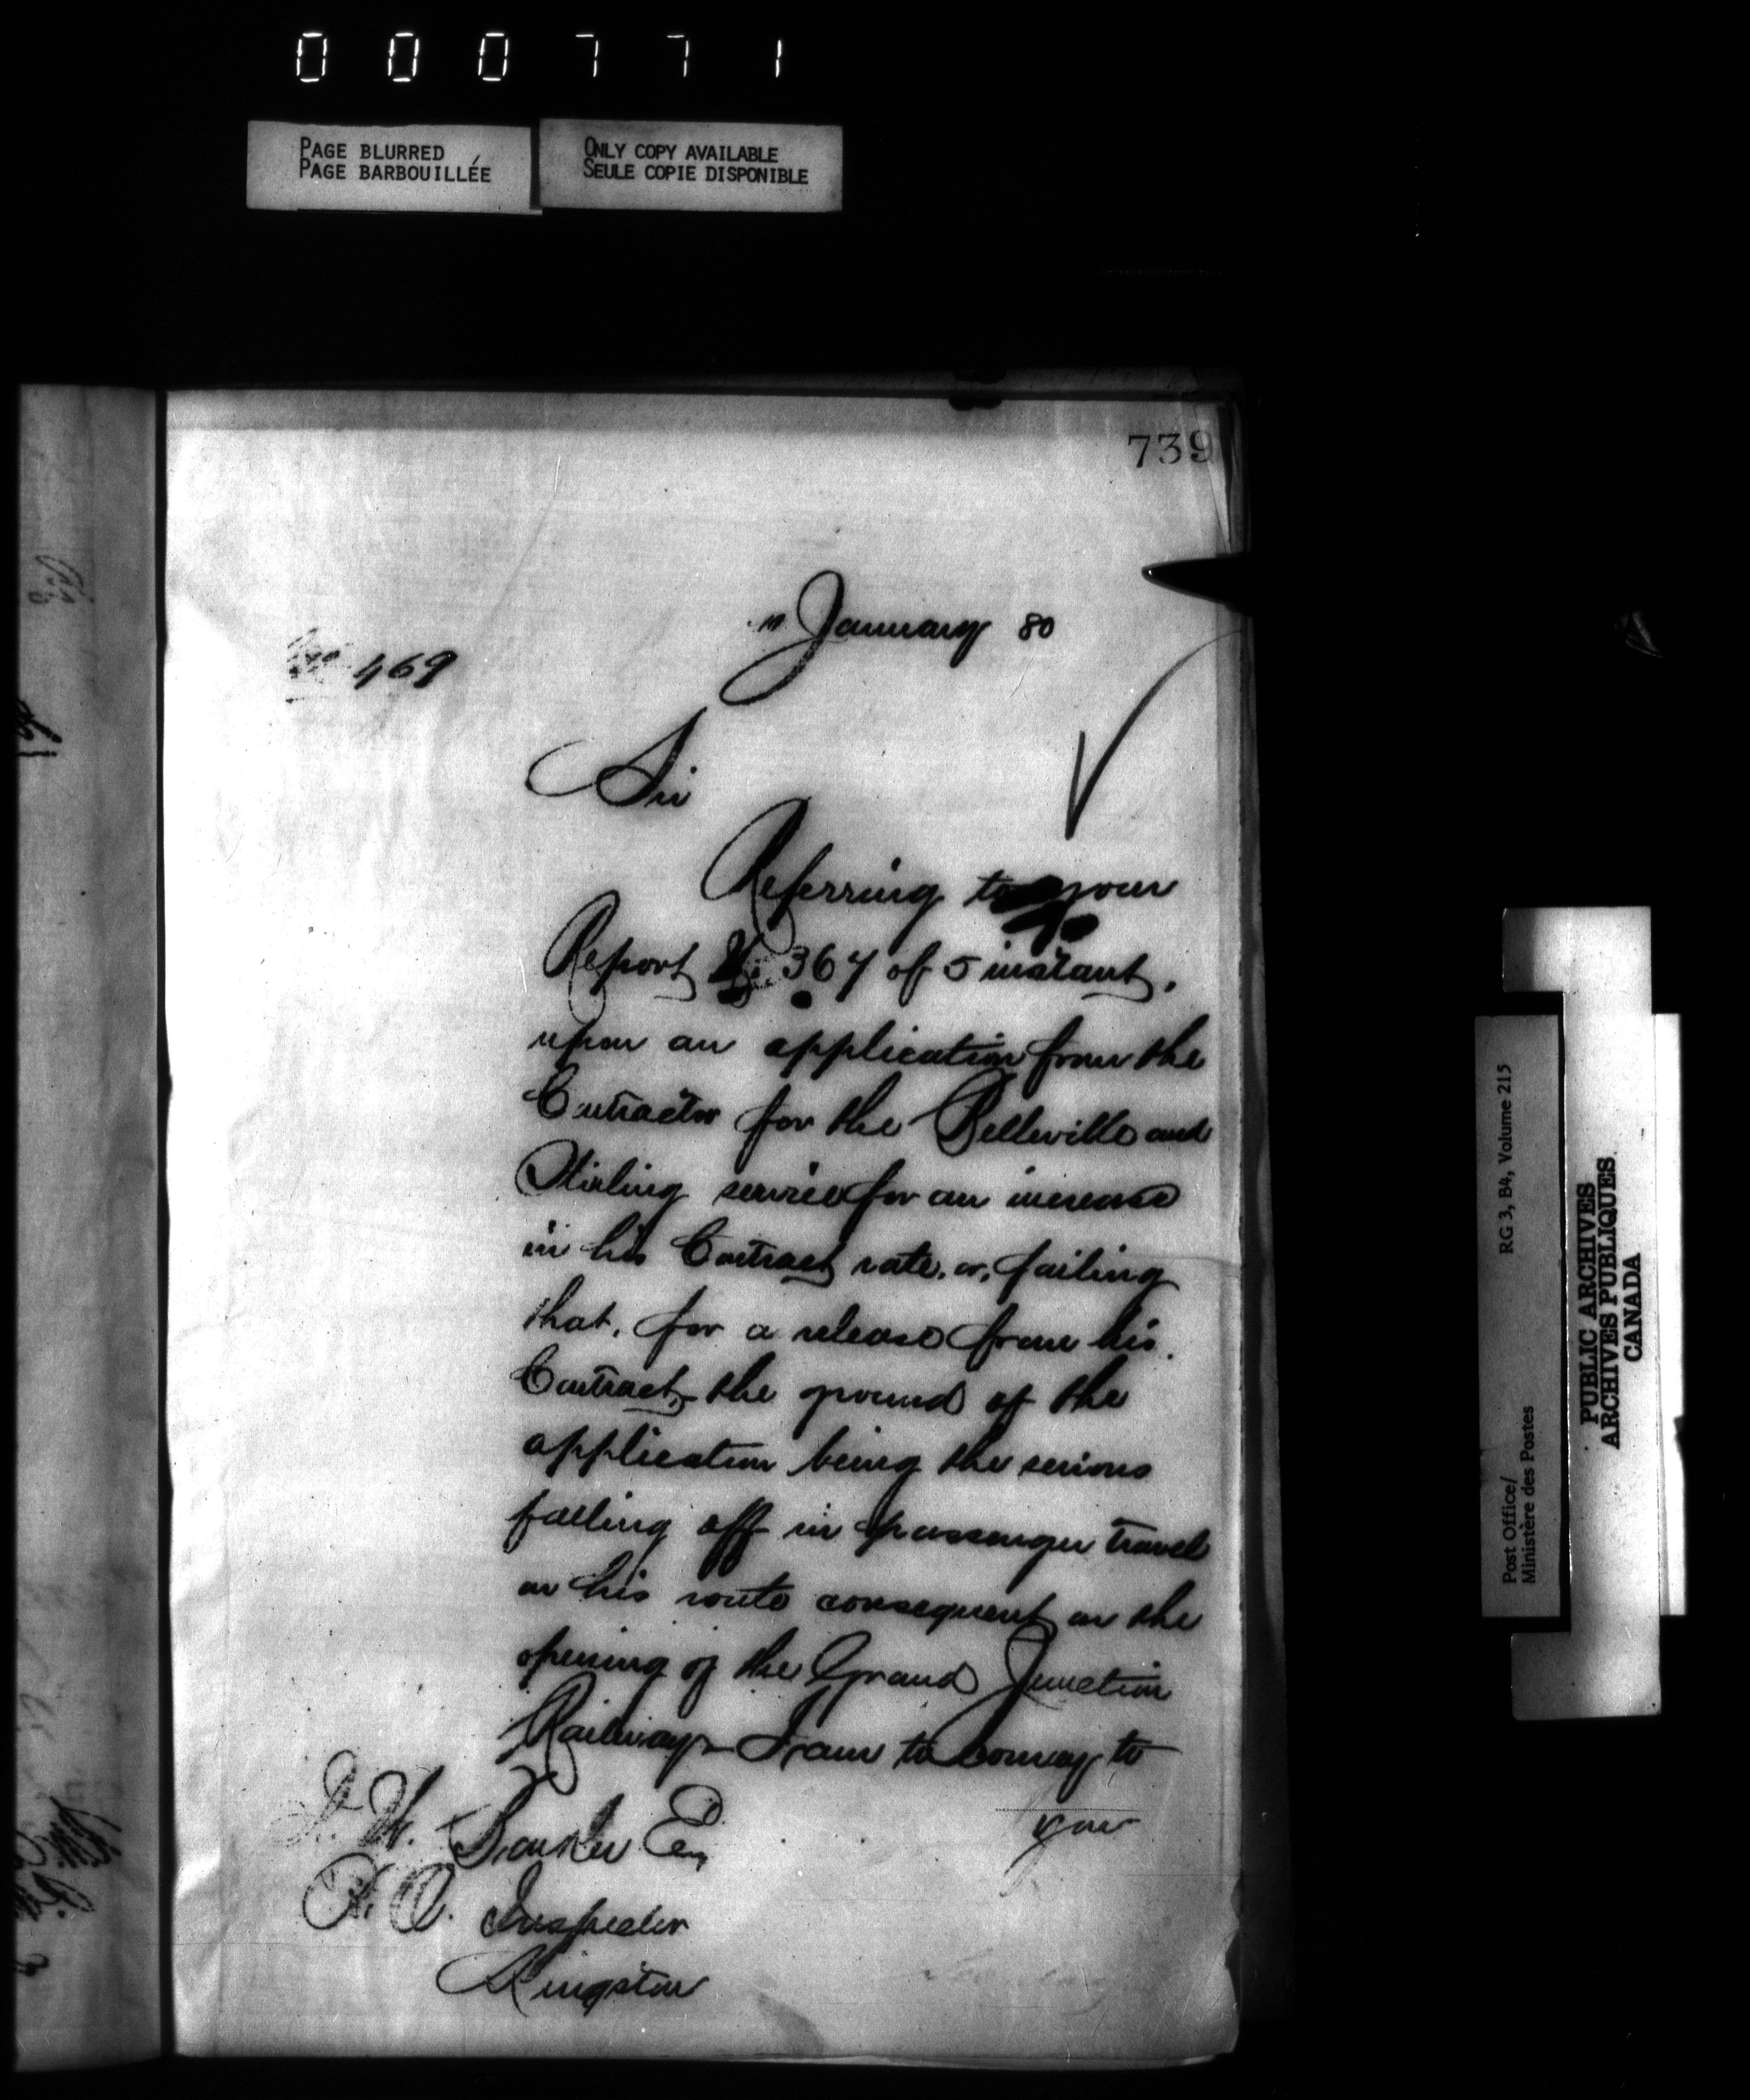 000771
PAGE BLURRED
PAGE BARBOUILLÉE
ONLY COPY AVAILABLE
SEULE COPIE DISPONIBLE
739
January 80
No 469
Sir
Referring to your
Report No. 367 of 5 instant,
upon an application from the
Contractor for the Belleville and
Stirling service for an increase
in his Contract rate, or, failing
that, for a release from his
Contract, the ground of the
application being the serious
falling off in passenger travel
on his route consequent on the
opening of the Grand Junction
Railway - I am to convey to
you
Esq
P. O. Inspector
Kingston
Post Office/
Ministère des Postes
RG 3, B4, Volume 215
PUBLIC ARCHIVES
ARCHIVES PUBLIQUES
CANADA